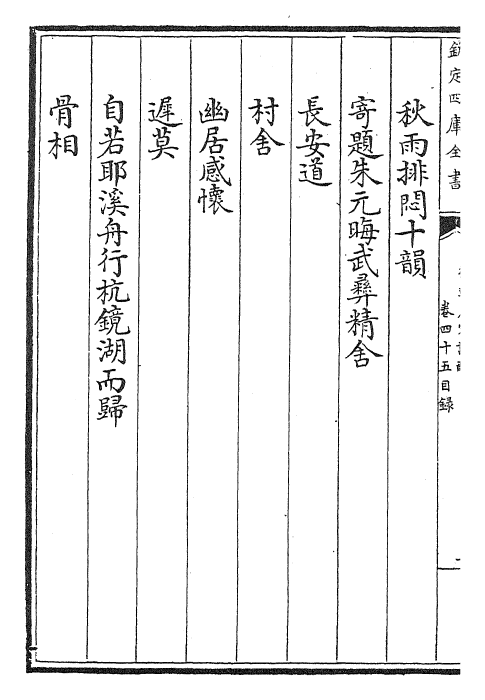 欽定四庫全書
卷四十五目錄
秋雨排悶十韻
寄題朱元晦武彝精舍
長安道
村舍
幽居感懷
遲莫
自若耶溪舟行杭鏡湖而歸
骨相